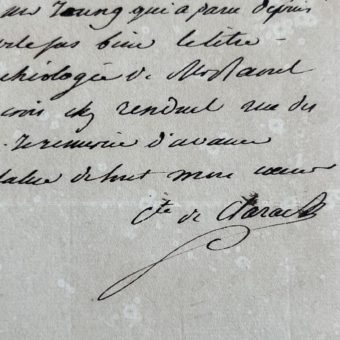 young qui a paru depuis
pas bien le titre
chéologie de
crois chez renduel rue des
remercie d'avance
salue de tout mon coeur
Cte de Clarac